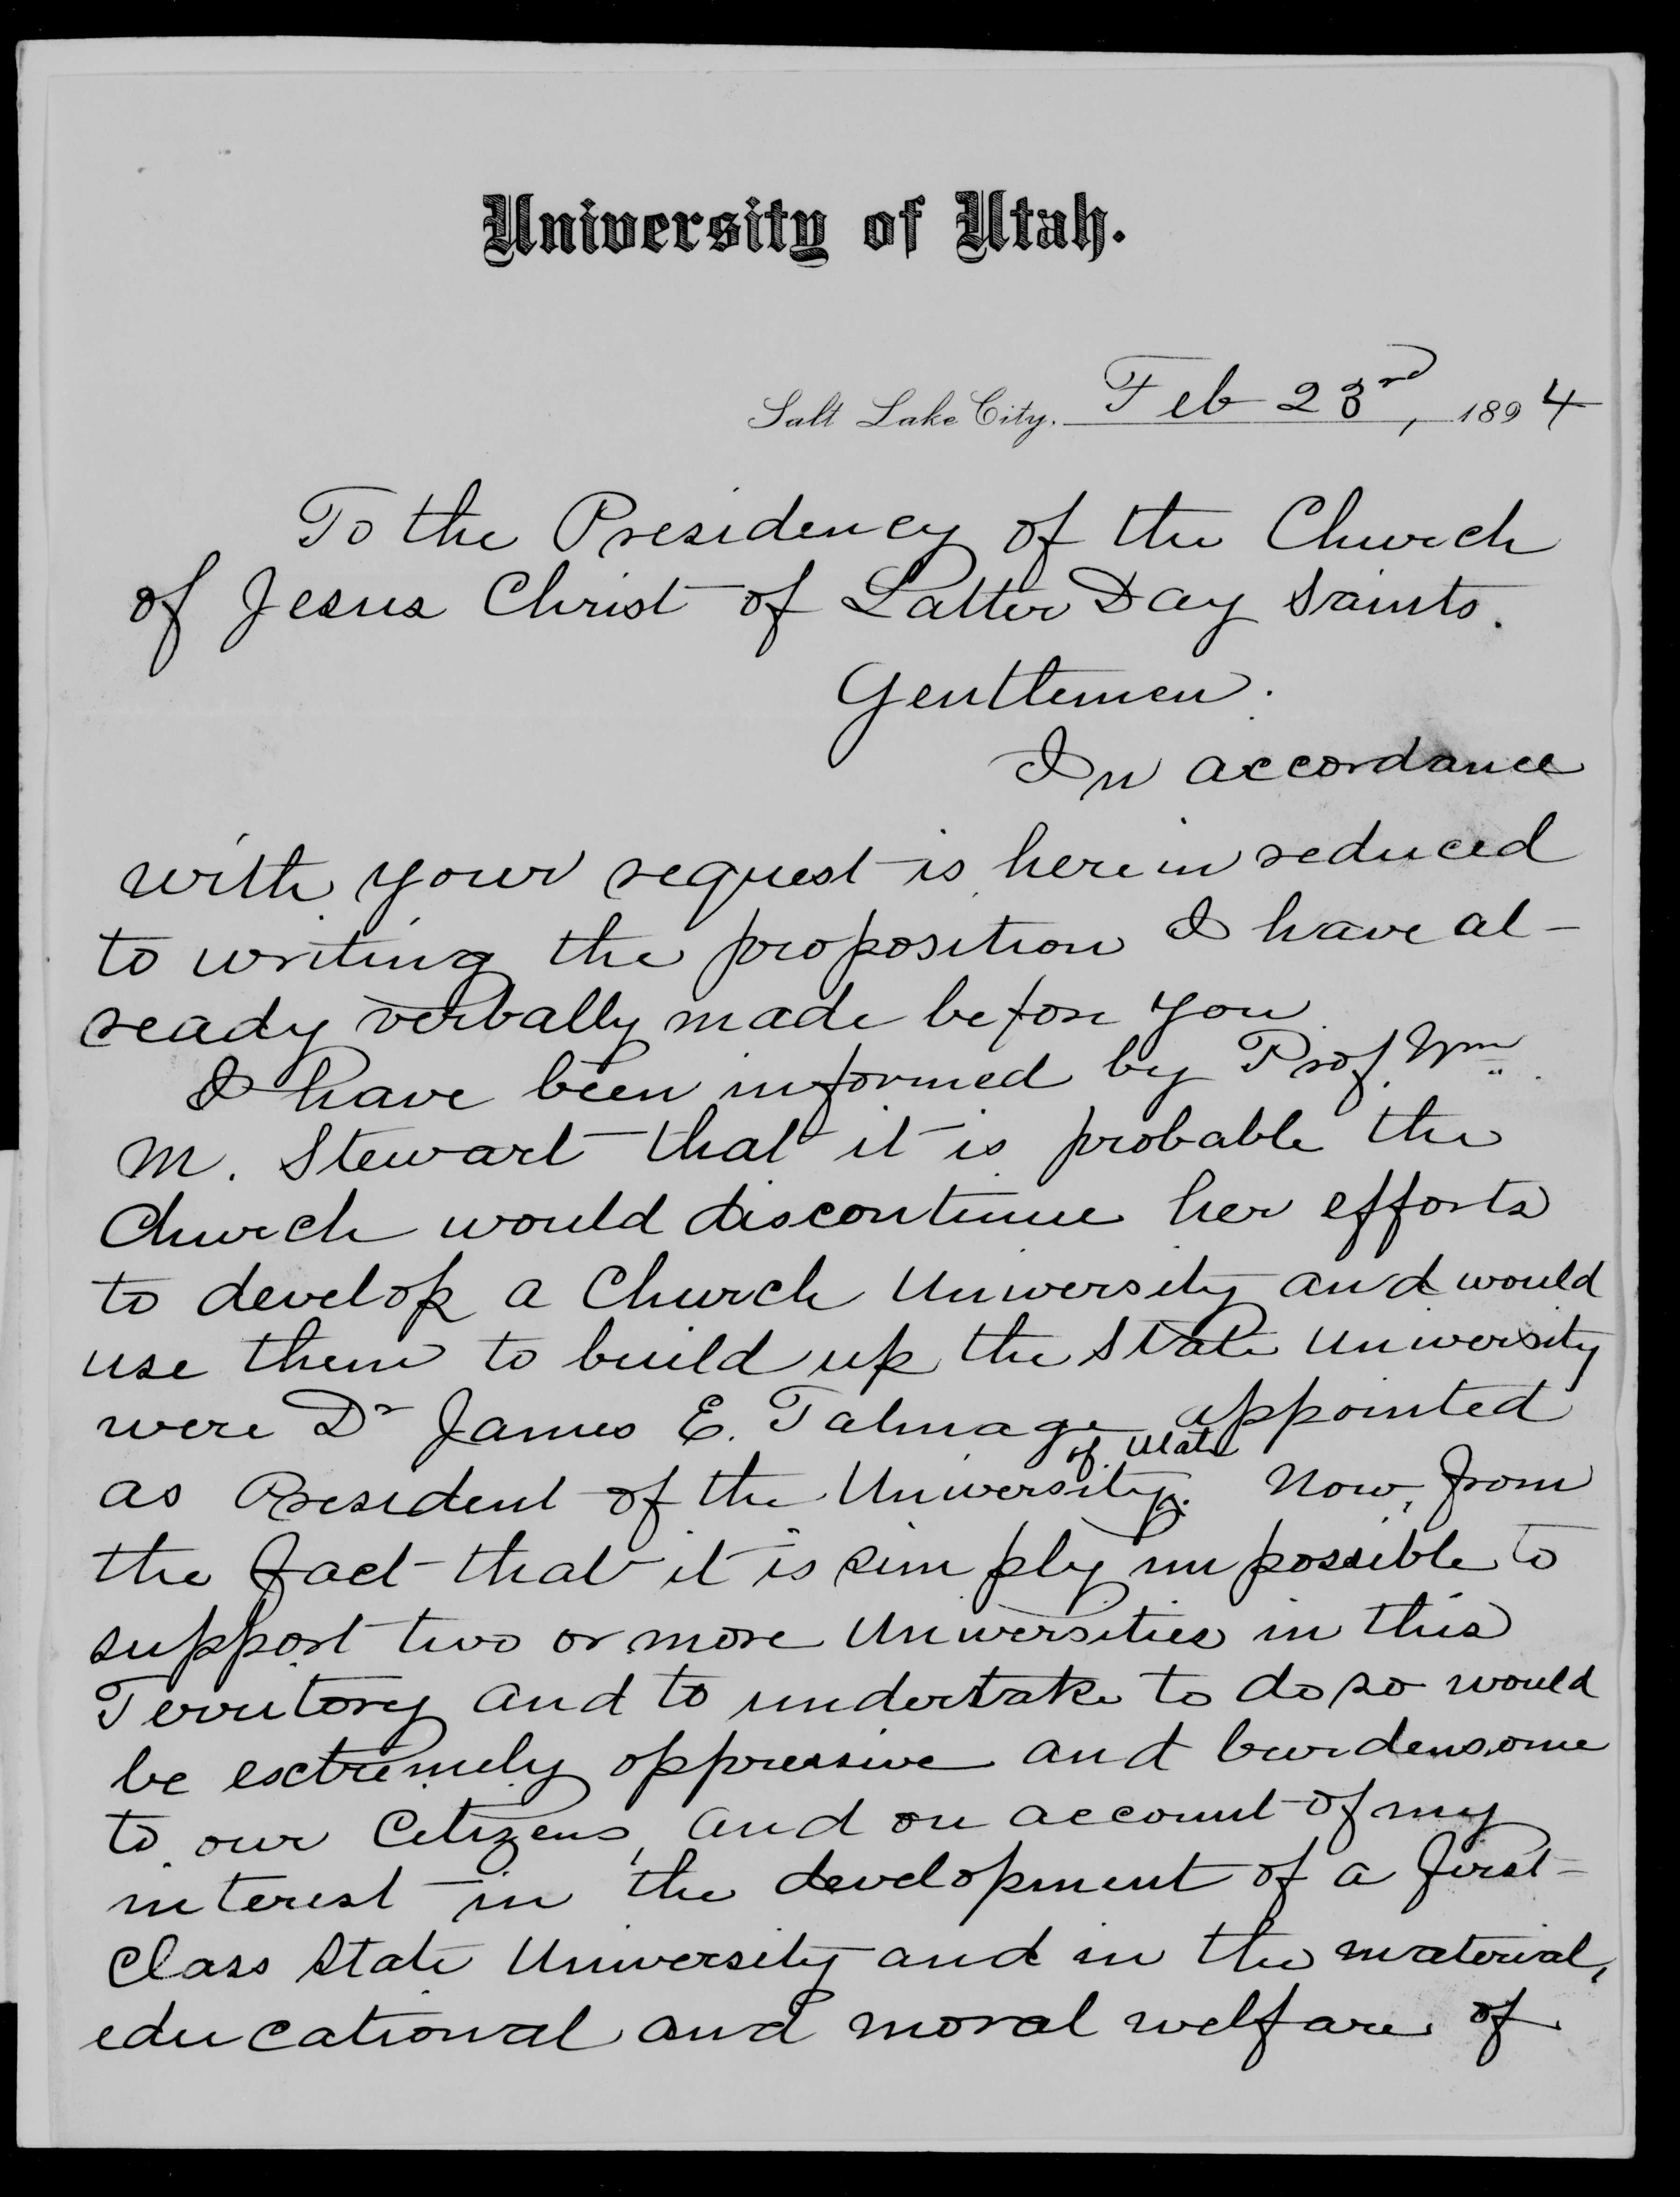 University of Utah.
Salt Lake City. Feb 23rd, 1894
To the Presidency of the Church
of Jesus Christ of Latter Day Saints.
Gentlemen:
In accordance
with your request is herein reduced
to writing the proposition I have al-
ready verbally made before you.
I have been informed by Prof. Wm.
M. Stewart that it is probable the
Church would discontinue her efforts
to develop a Church University and would
use them to build up the State University
were Dr James E. Talmage appointed
of Utah
as President of the University. Now, from
the fact that it is simply impossible to
support two or more Universities in this
Territory and to undertake to do so would
be extremely oppressive and burdensome
to our Citizens, and on account of my
interest in the development of a first-
Class State University and in the material,
educational and moral welfare of